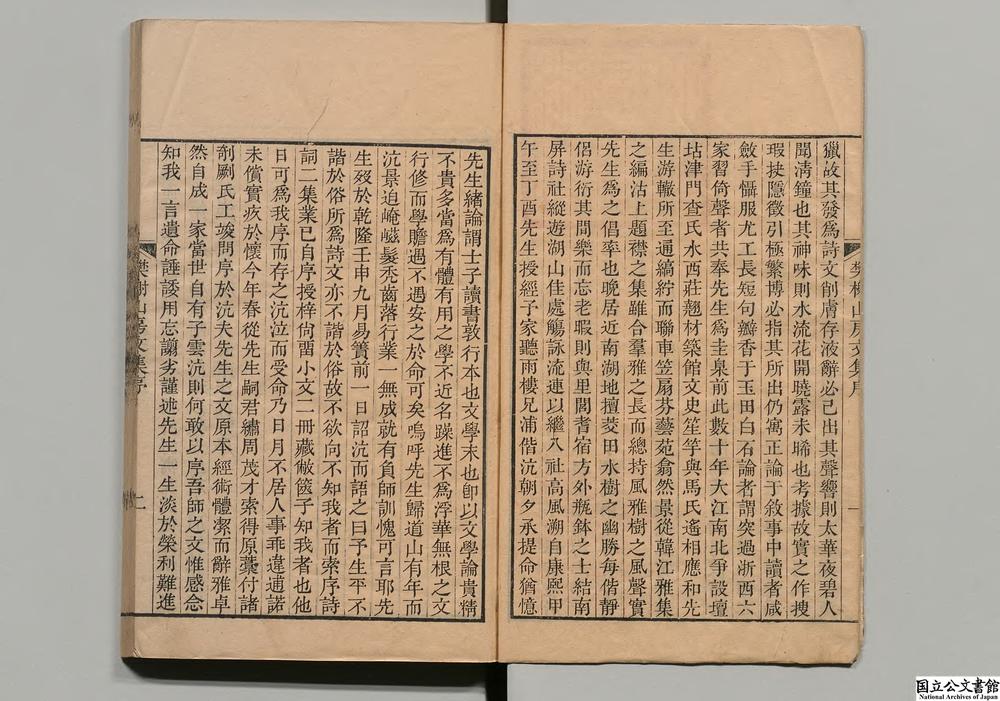 獵故其發爲詩文削膚存液辭必己出其聲響則太華夜碧人
聞淸鐘也其神味則水流花開曉露未晞也考據故實之作搜
瑕抉隱徵引極繁博必指其所出仍寓正論于敘事中讀者咸
斂手懾服尤工長短句瓣香于玉田白石論者謂突過浙西六
家習倚聲者共奉先生爲圭臬前此數十年大江南北爭設壇
坫津門查氏水西莊翹材築館文史笙竽與馬氏遙相應和先
生游轍所至通縞紵而聯車笠扇芬藝苑翕然景從韓江雅集
之編沽上題襟之集雖合羣雅之長而總持風雅樹之風聲實
先生爲之倡率也晚居近南湖地擅菱田水樹之幽勝每偕靜
侶游衍其間樂而忘老暇則與里閈耆宿方外瓶鉢之士結南
屏詩社縱遊湖山佳處觴詠流連以繼八社高風溯自康熙甲
午至丁酉先生授經予家聽雨樓兄浦偕沆朝夕承提命猶憶
樊榭山房文集序
一
先生緒論謂士子讀書敦行本也文學末也卽以文學論貴精
不貴多當爲有體有用之學不近名躁進不爲浮華無根之文
行修而學贍遇不遇安之於命可矣嗚呼先生歸道山有年而
沆景迫崦嵫髮禿齒落行業一無成就有負師訓愧可言耶先
生歿於乾隆壬申九月易簀前一日詔沆而語之曰予生平不
諧於俗所爲詩文亦不諧於俗故不欲向不知我者而索序詩
詞二集業已自序授梓尙留小文二冊藏敝篋子知我者也他
日可爲我序而存之沆泣而受命乃日月不居人事乖違逋諾
未償實疚於懷今年春從先生嗣君繡周茂才索得原藁付諸
剞劂氏工竣問序於沆夫先生之文原本經術體潔而辭雅卓
然自成一家當世自有子雲沆則何敢以序吾師之文惟感念
知我一言遺命諈諉用忘譾劣謹述先生一生淡於榮利難進
樊榭山房文集序
二
国立公文書館
National Archives of Japan